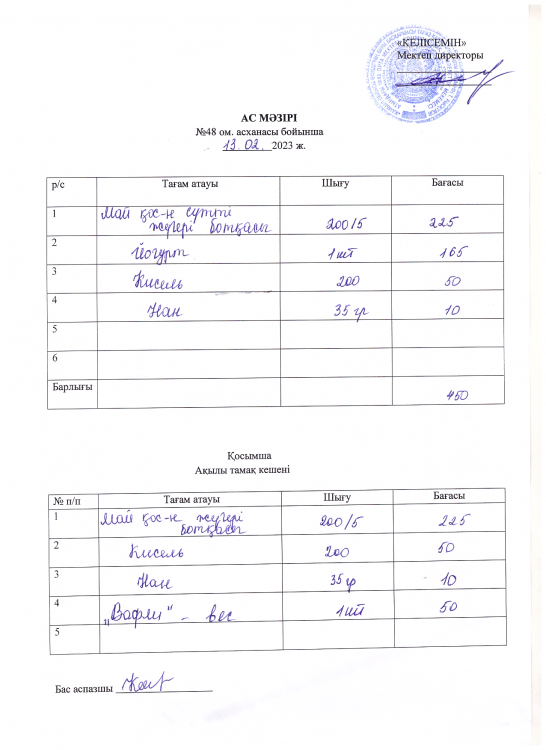 «КЕЛІСЕМІН»
Мектеп директоры
АС МӘЗІРІ
№48 ом. асханасы бойынша
13.02. 2023 ж.
р/с Тағам атауы Шығу Бағасы
1 Май қос-н сүтті
жүгері ботқасы 200/5 225
2 Йогурт 1 шт 165
3 Кисель 200 50
4 Нан 35 гр 10
5
6
Барлығы 450
Қосымша
Ақылы тамақ кешені
№ п/п Тағам атауы Шығу Бағасы
1 Май қос-н жүгері
ботқасы 200/5 225
2 Кисель 200 50
3 Нан 35 гр 10
4 „Вафли" - вес 1 шт 50
5
Бас аспазшы